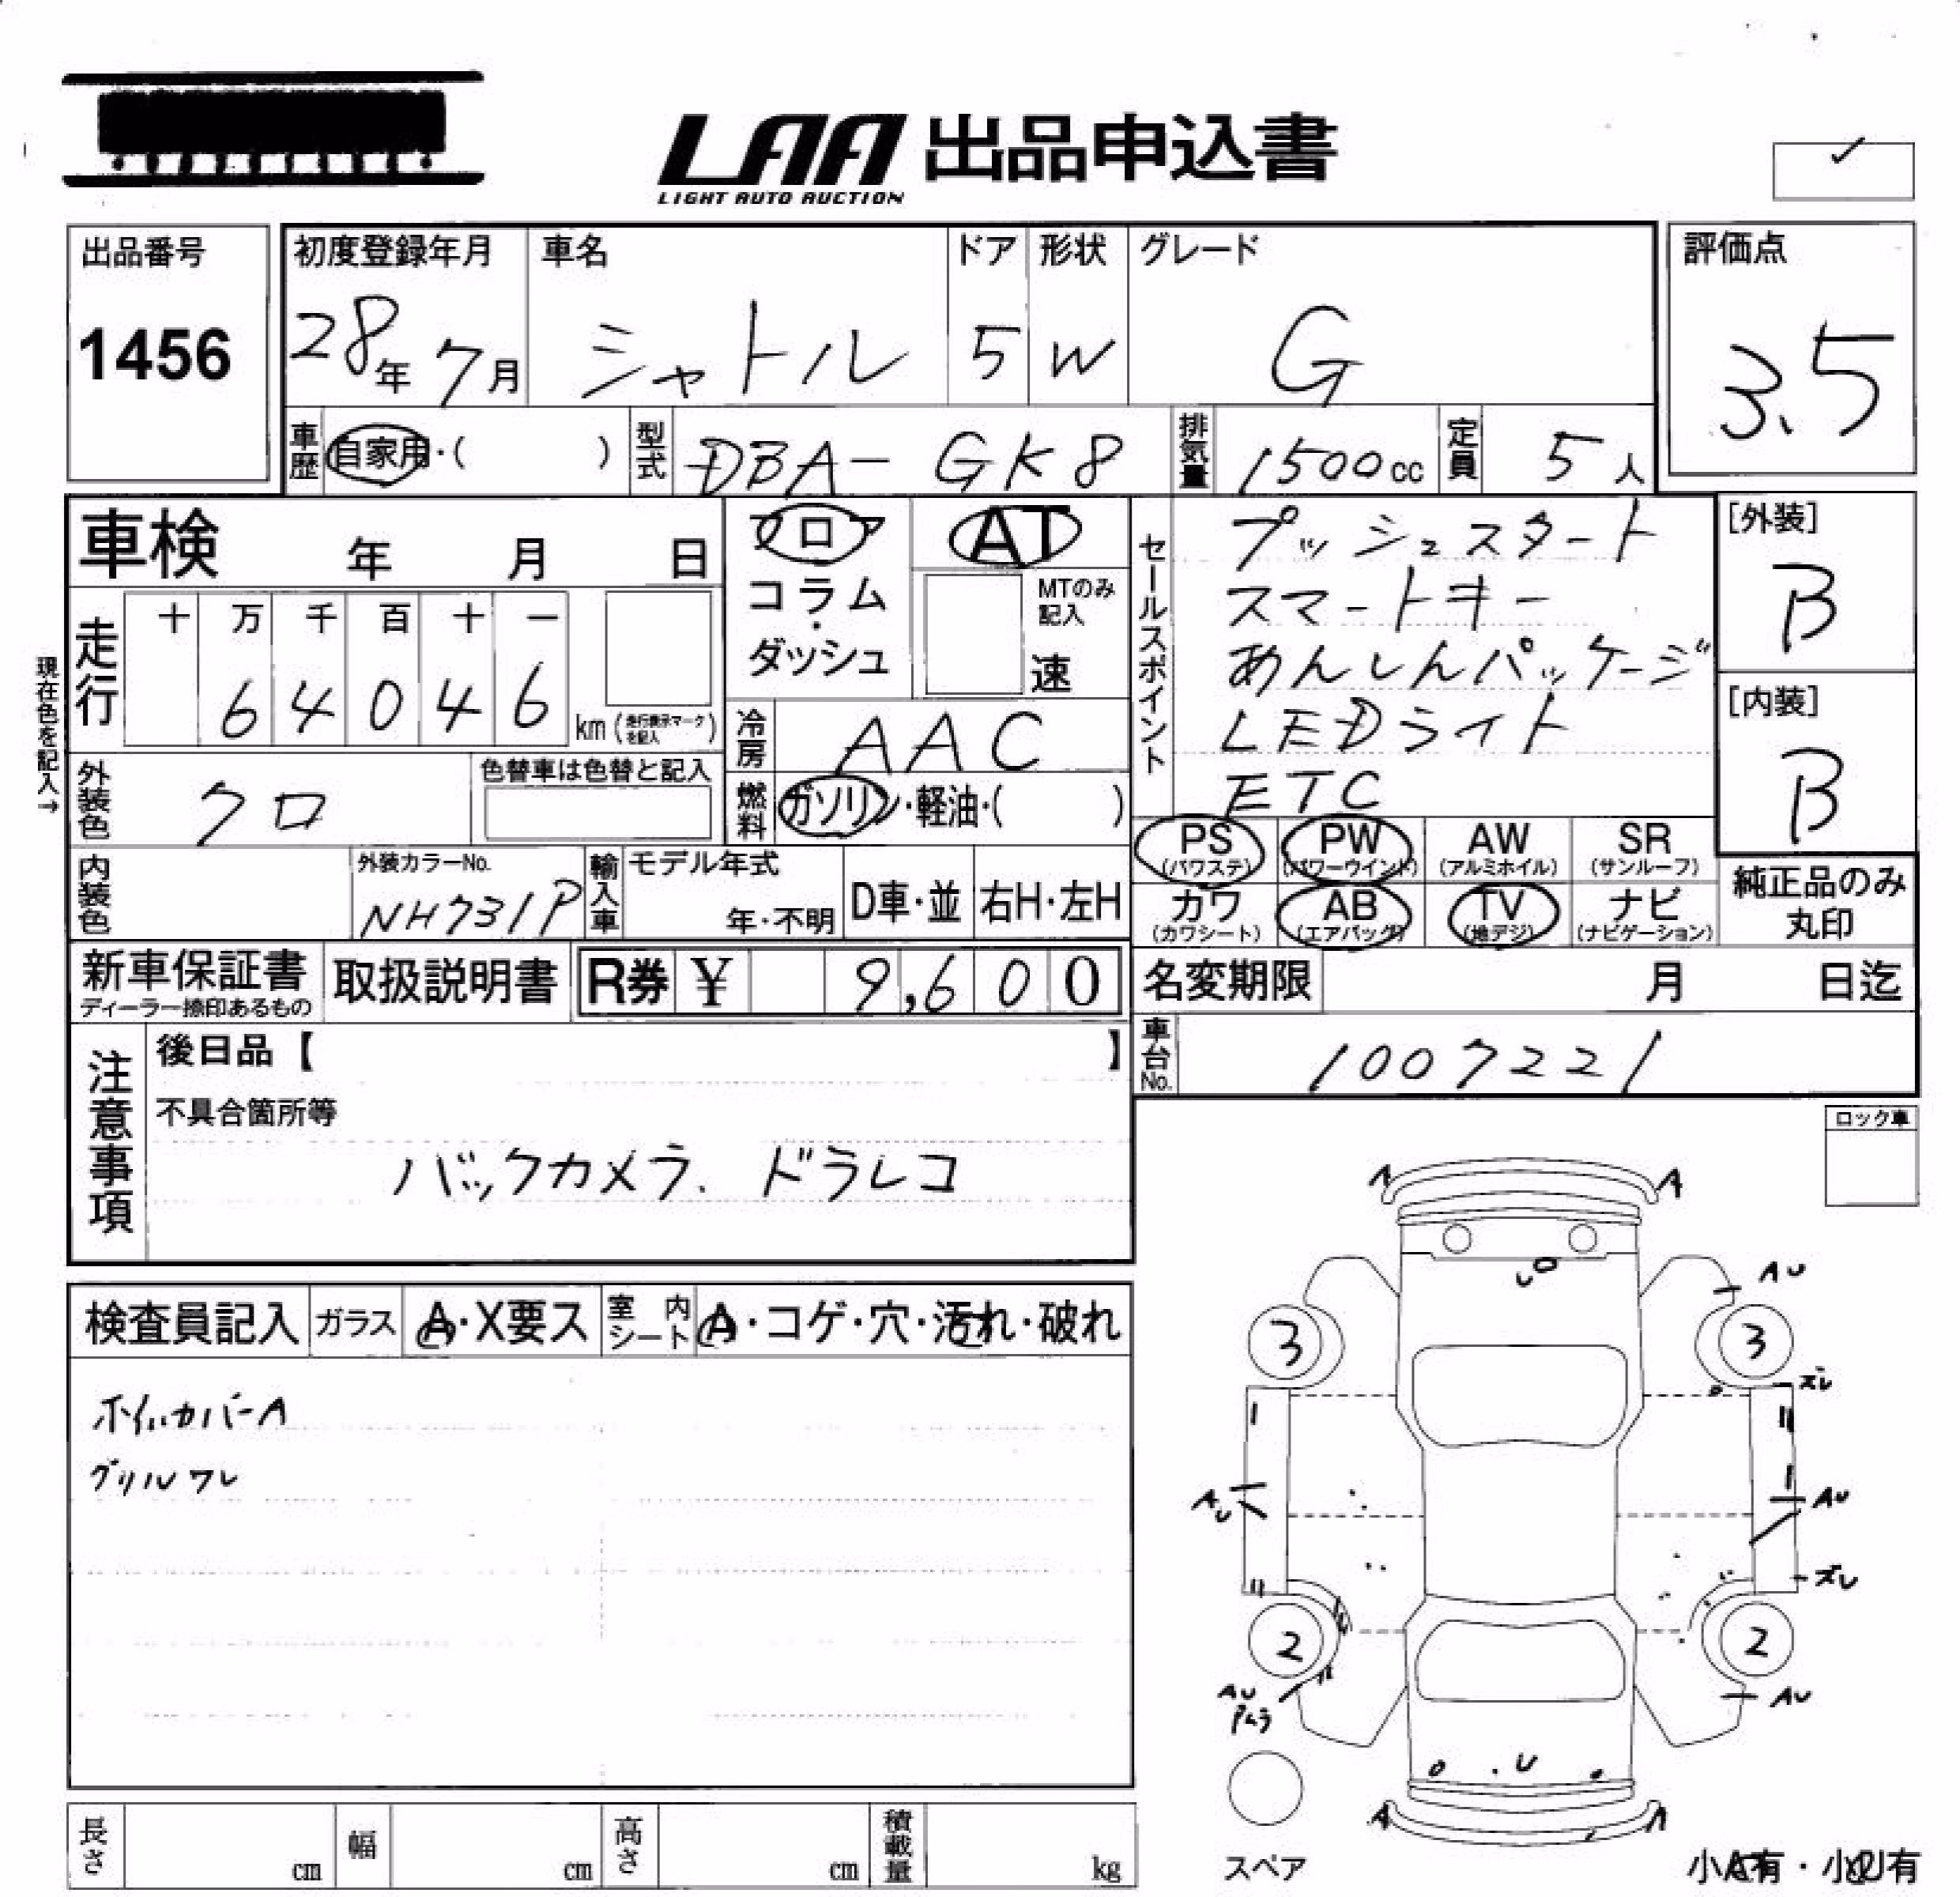 LAA 出品申込書
LIGHT AUTO AUCTION
出品番号
1456
初度登録年月
28年 7月
車名
シャトル
ドア
5
形状
W
グレード
G
評価点
3.5
車歴
自家用・( )
型式
DBA- GK8
排気量
1500cc
定員
5人
車検 年 月 日
フロア
コラム
・
ダッシュ
AT
MTのみ
記入
速
セールスポイント
プッシュスタート
スマートキー
あんしんパッケージ
LEDライト
ETC
[外装]
B
[内装]
B
現在色を記入→
走行
十 万 千 百 十 一
6 4 0 4 6
km(走行表示マークを記入)
冷房
AAC
外装色
クロ
色替車は色替と記入
燃料
ガソリン・軽油・( )
PS
(パワステ)
PW
(パワーウインド)
AW
(アルミホイル)
SR
(サンルーフ)
カワ
(カワシート)
AB
(エアバッグ)
TV
(地デジ)
ナビ
(ナビゲーション)
純正品のみ
丸印
内装色
外装カラーNo.
NH731P
輸入車
モデル年式
年・不明
D車・並
右H・左H
新車保証書
ディーラー捺印あるもの
取扱説明書
R券 ¥ 9,600
名変期限 月 日迄
車台No.
1007221
注意事項
後日品【 】
不具合箇所等
バックカメラ. ドラレコ
ロック車
検査員記入
ガラス
A・X要ス
室内シート
A・コゲ・穴・汚れ・破れ
ホイルカバーA
グリルワレ
A A
AU
3 3
ズレ
AU AU
ズレ
2 2
AU
AU
U
A A
スペア
小A有・小U有
長さ cm
幅 cm
高さ cm
積載量 kg